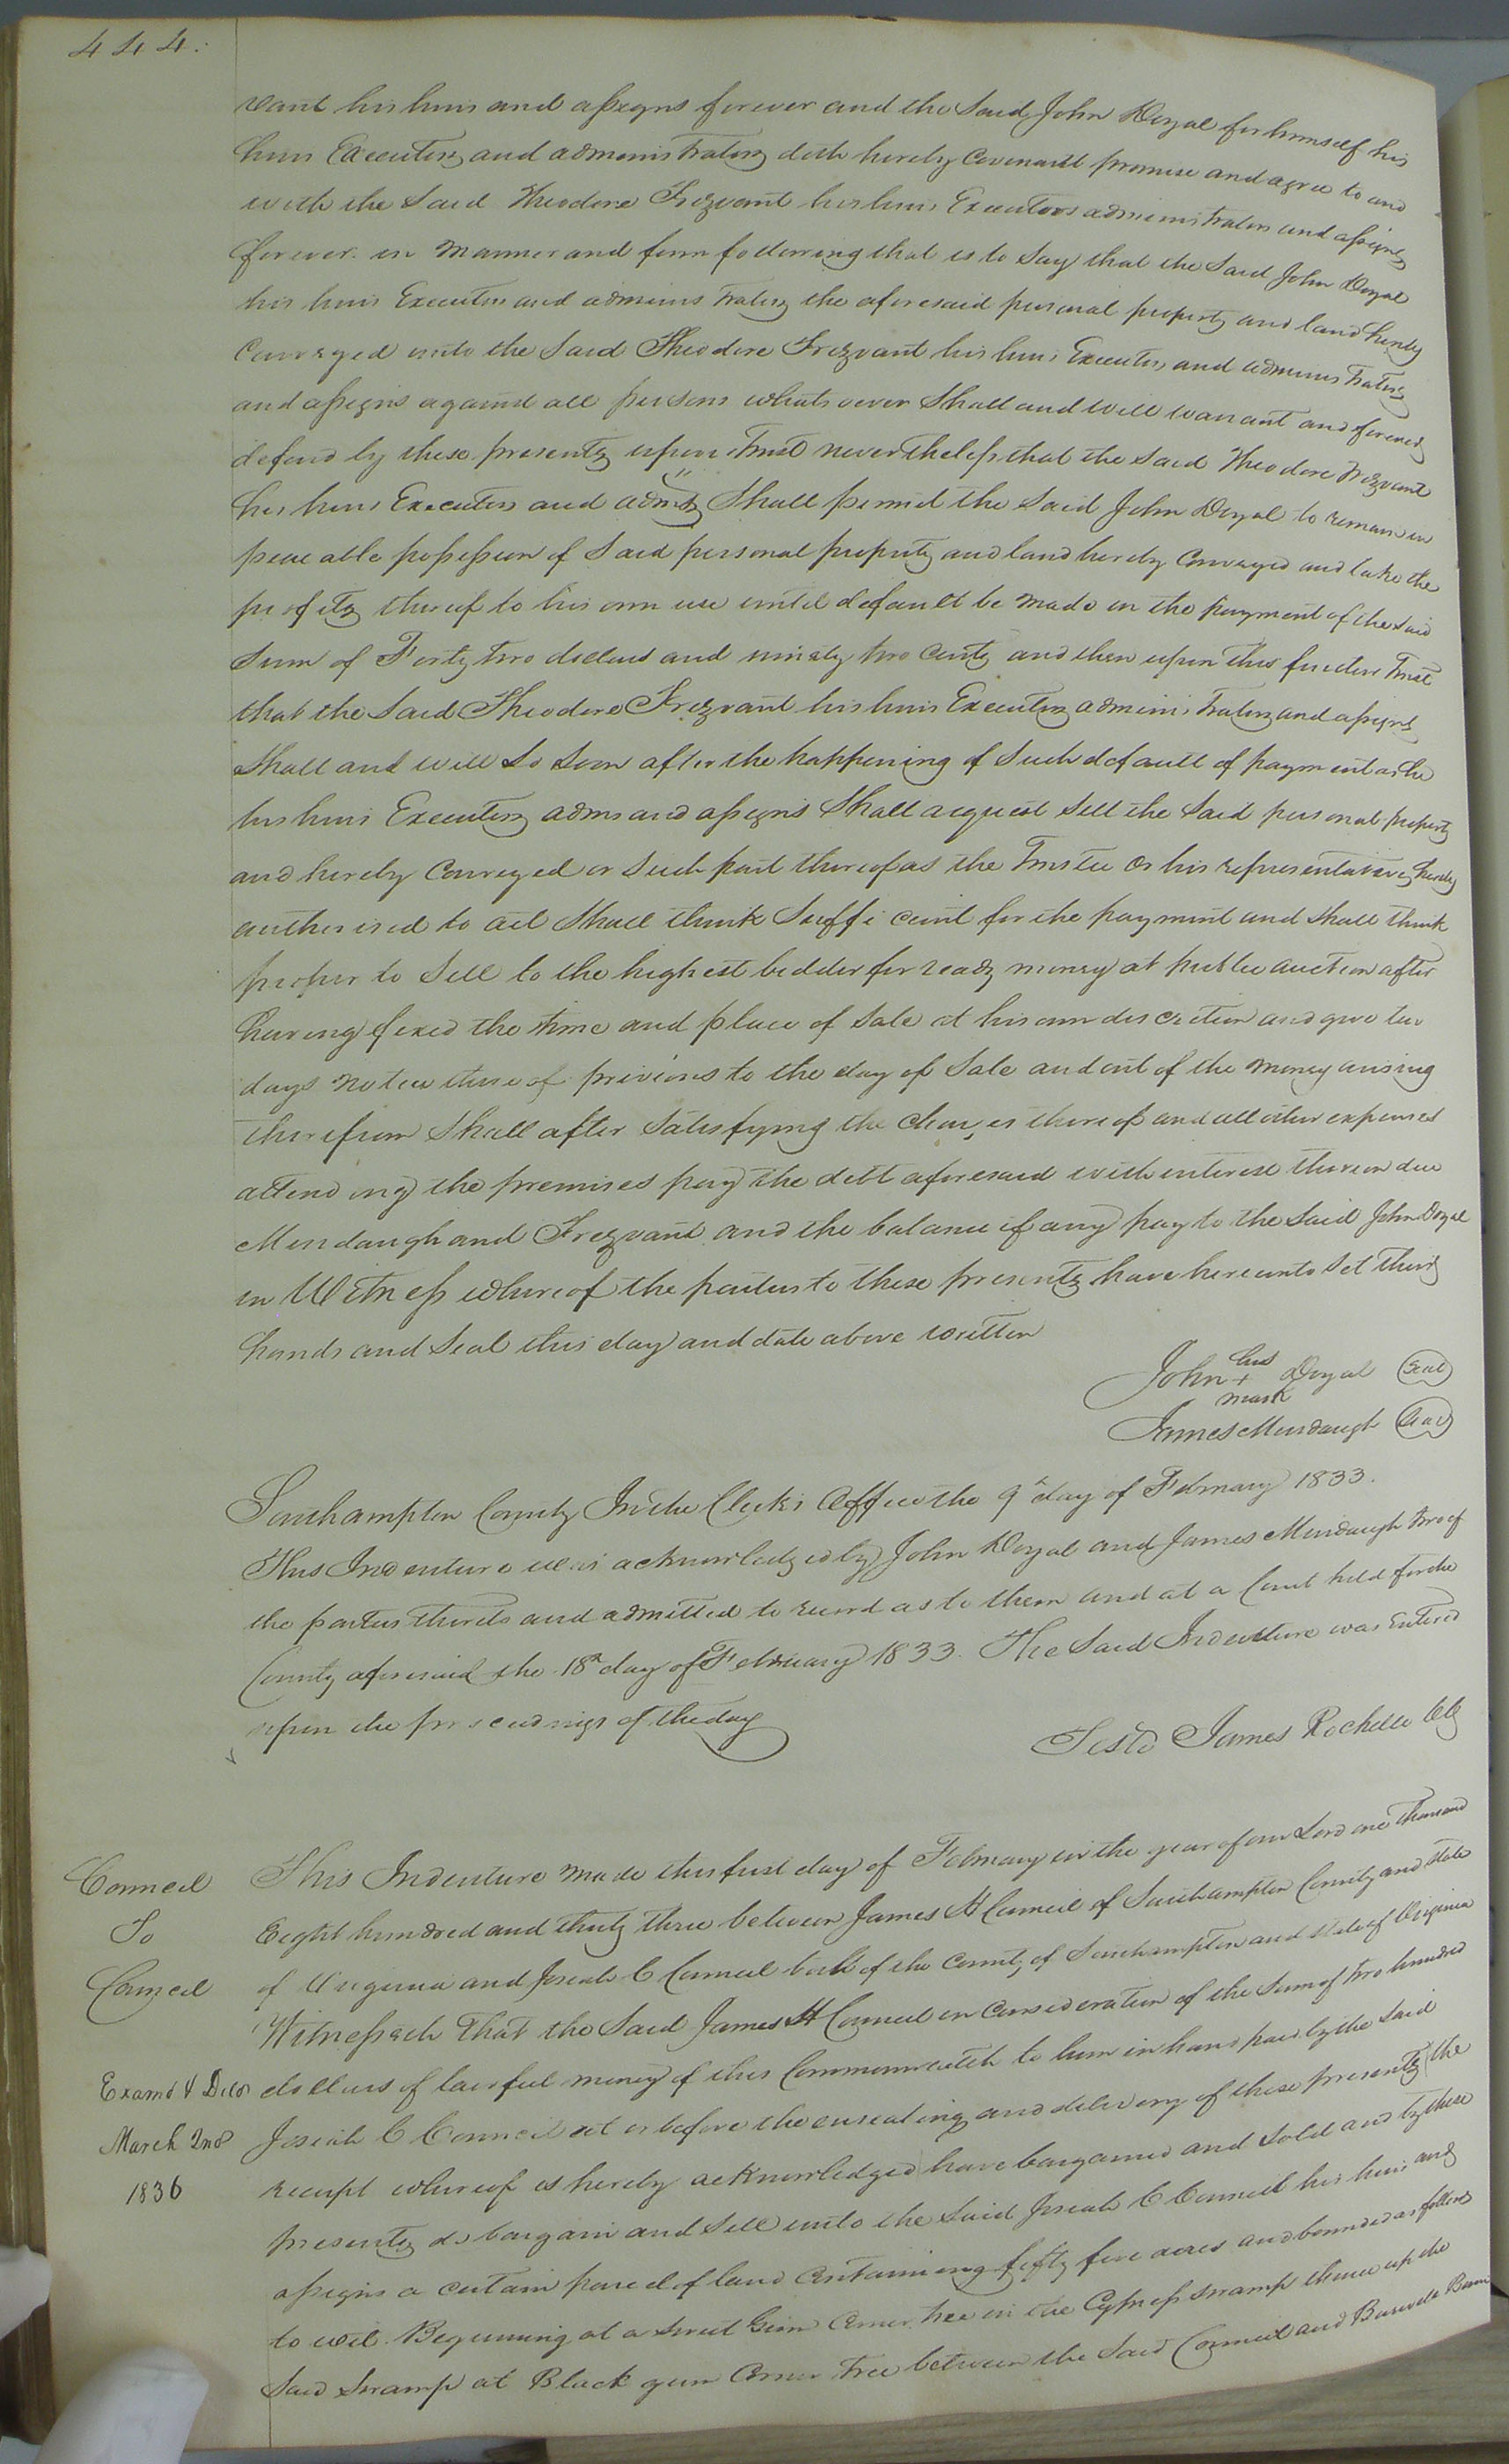 444.
vant his heirs and assigns forever and the Said John Doyal for himself his
heirs Executors and administrators doth hereby Covenant promise and agree to and
with the Said Theodore Trezvant his heirs Executors administrators and assigns
forever in manner and form following that is to Say that the Said John Doyal
his heirs Executors and administrators the aforesaid personal property and land hereby
Conveyed unto the Said Theodore Trezvant his heirs Executors and administrators
and assigns against all persons whatsoever Shall and will warrant and forever
defend by these presents upon Trust nevertheless that the Said Theodore Trezvant
his heirs Executors and admrs Shall permit the Said John Doyal to remain in
peaceable possession of Said personal property and land hereby Conveyed and take the
profits thereof to his own use until default be made in the payment of the Said
Sum of Forty two dollars and ninety two Cents and then upon this further Trust
that the Said Theodore Trezvant his heirs Executors administrators and assigns
Shall and will So Soon after the happening of Such default of payment as he
his heirs Executors adms and assigns Shall request Sell the Said personal property
and hereby Conveyed or Such part thereof as the Trustee or his representatives hereby
authorised to act Shall think Sufficient for the payment and Shall think
proper to Sell to the highest bidder for ready money at public auction after
having fixed the time and place of Sale at his own discretion and give ten
days notice thereof previous to the day of Sale and out of the money arising
therefrom Shall after Satisfying the Charges thereof and all other expenses
attending the premises pay the debt aforesaid with interest thereon due
Murdaugh and Trezvant and the balance if any pay to the Said John Doyal
in Witness whereof the parties to these presents have hereunto Set their
hands and Seal this day and date above written
John his + mark Doyal Seal
James Murdaugh Seal
Southampton County In the Clerk's Office the 9th day of February 1833.
This Indenture was acknowledged by John Doyal and James Murdaugh two of
the parties thereto and admitted to record as to them and at a Court held for the
County aforesaid the 18th day of February 1833. The Said Indenture was Entered
upon the proceedings of the day
Teste James Rochelle Clk
Council
To
Council
Examd & Deld
March 2nd
1836
This Indenture made this first day of February in the year of our Lord one Thousand
Eight hundred and thirty three between James H Council of Southampton County and State
of Virginia and Josiah C Council both of the County of Southampton and State of Virginia
Witnesseth That the Said James H Council in Consideration of the Sum of two hundred
dollars of lawful money of this Commonwealth to him in hand paid by the Said
Josiah C Council at or before the ensealing and delivery of these presents the
receipt whereof is hereby acknowledged have bargained and Sold and by these
presents do bargain and Sell unto the Said Josiah C Council his heirs and
assigns a certain parcel of land Containing fifty five acres and bounded as follows
to wit. Beginning at a Sweet Gum Corner tree in the Cypress Swamp thence up the
Said Swamp at Black gum Corner Tree between the Said Council and